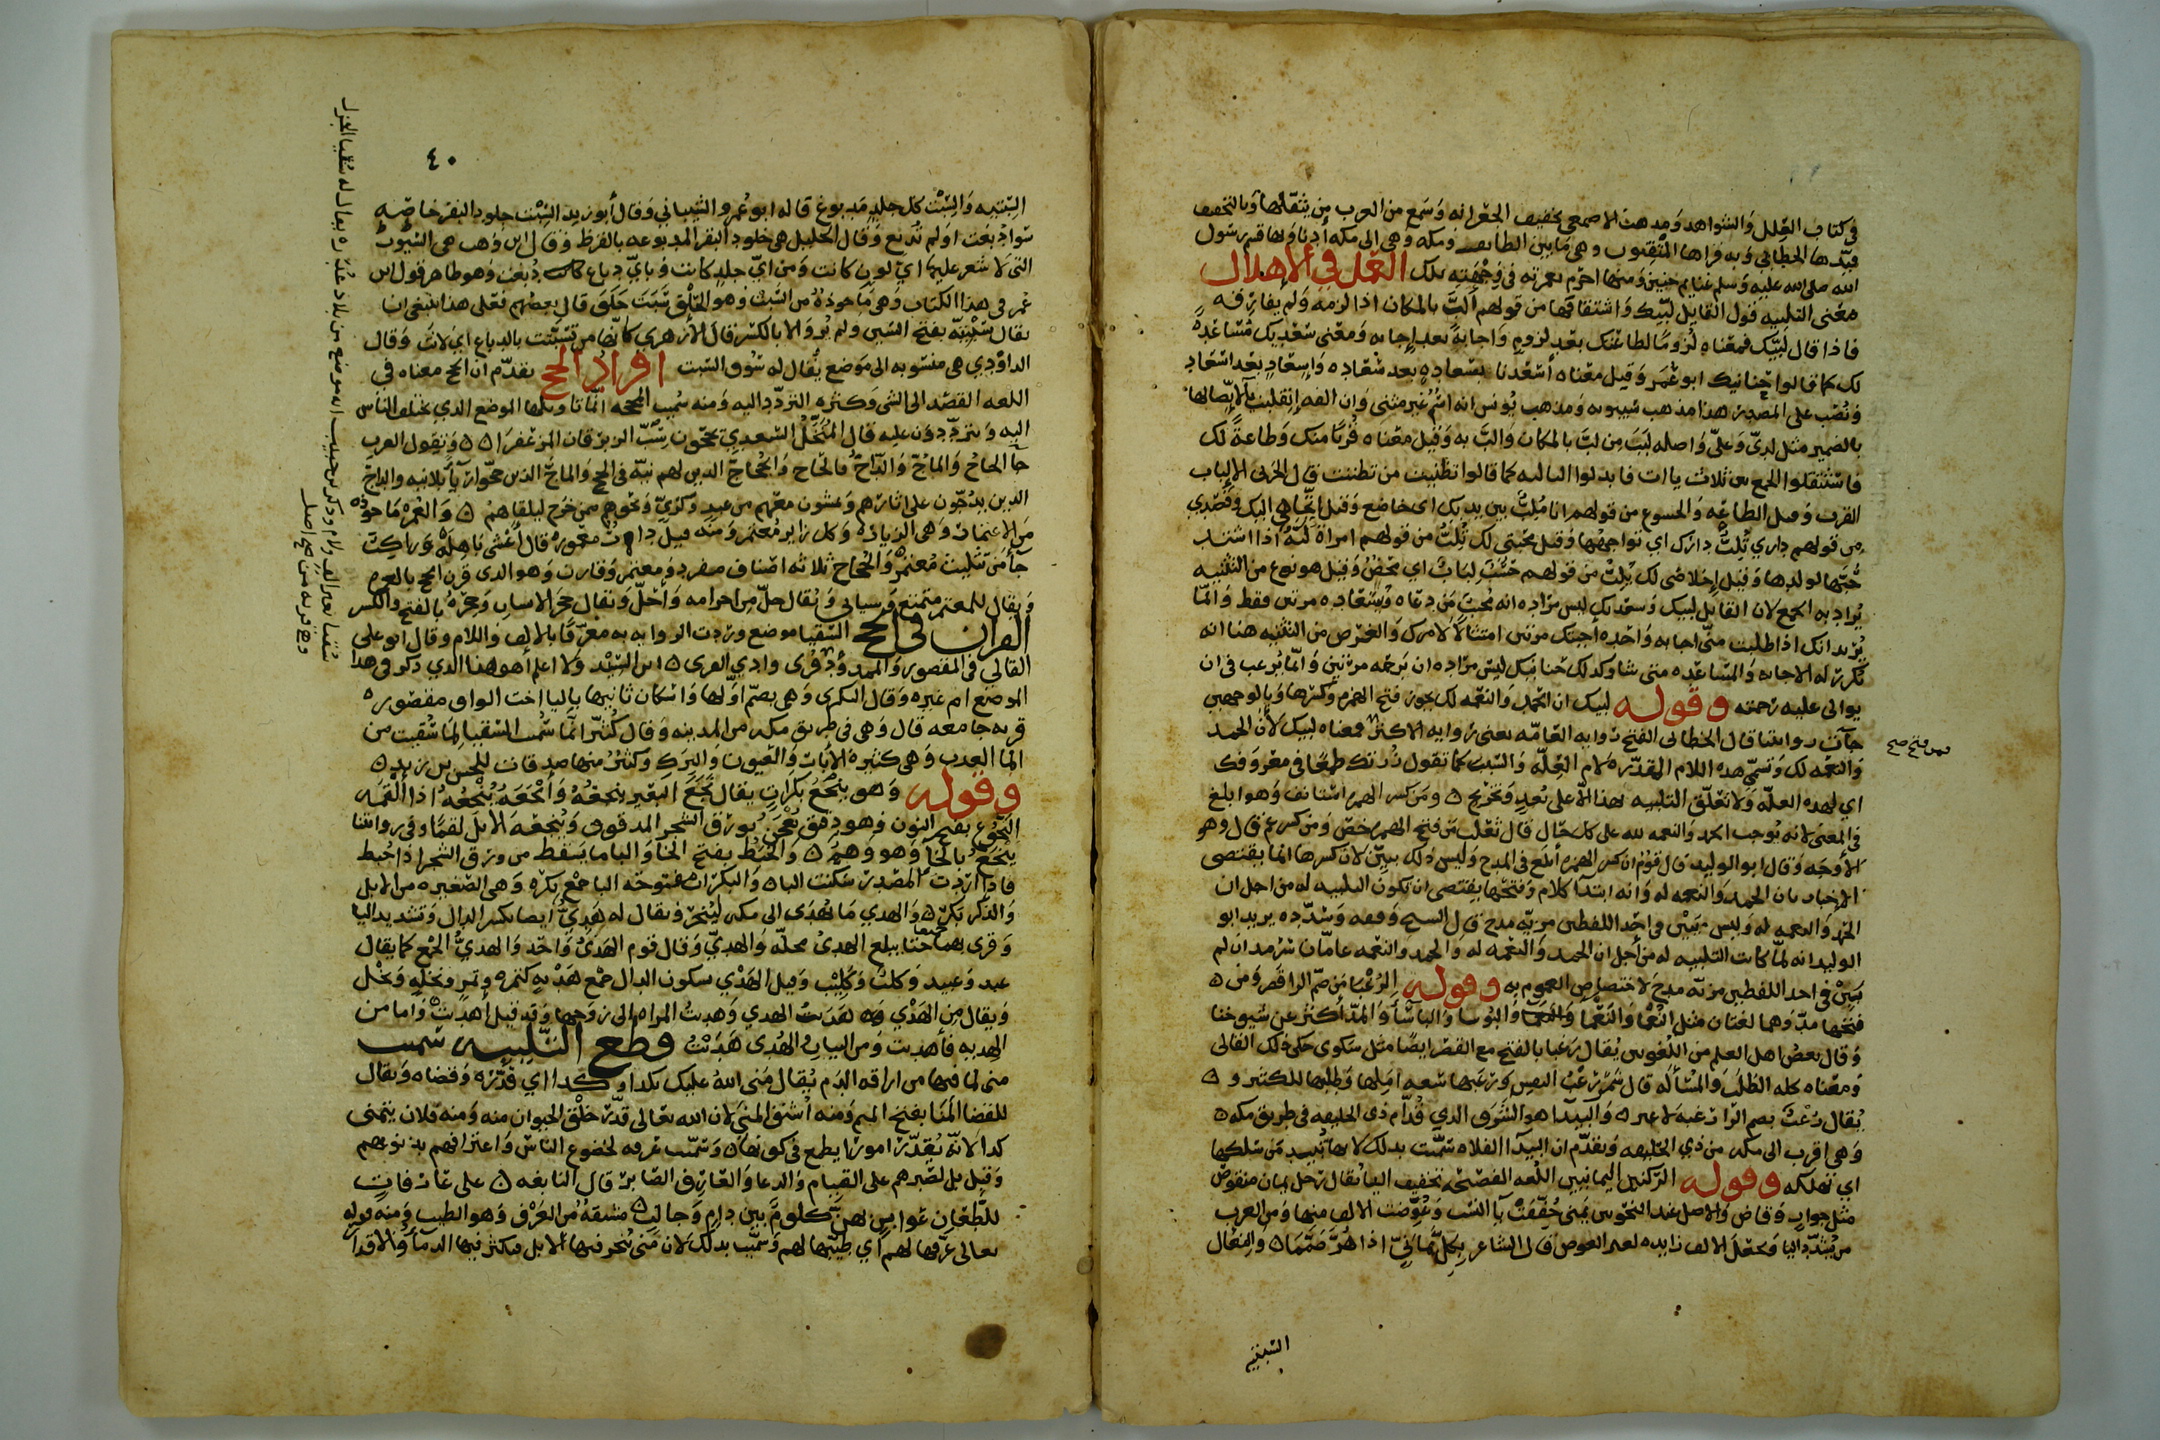 في كتاب العلل والشواهد ومذهب الاصمعي تخفيف الجعرانه وسمع من العرب من يثقلها وبالتخفيف
قيدها الخطابي وبه قراها المتقنون وهي ما بين الطائف ومكه وهي الى مكه ادنا وبها قسم رسول
الله صلى الله عليه وسلم غنايم حنين ومنها احرم بعمرته في وجهته تلك العمل في الاهلال
معنى التلبيه قول القايل لبيك واشتقاقها من قولهم الب بالمكان اذا لزمه ولم يفارقه
فاذا قال لبيك فمعناه لزوما لطاعتك بعد لزوم واجابة بعد اجابه ومعنى سعديك مساعدة
لك كما قالوا حنانيك ابو عمر وقيل معناه أسعدنا بسعاده بعد سعاده واسعاد بعد اسعاد
ونصب على المصدر هذا مذهب سيبويه ومذهب يونس انه اسم غير مثنى وان الفه انقلبت لاتصالها
بالضمير مثل لدى وعلى واصله لبب من لب بالمكان والب به وقيل معناه قربا منك وطاعة لك
فاستثقلوا الجمع بين ثلاث باات فابدلوا الثالثه كما قالوا تظنيت من تظننت قال الحربي الالباب
القرب وقيل الطاعه والخضوع من قولهم انا ملب بين يديك اي خاضع وقيل اتجاهي اليك وقصدي
من قولهم داري تلب دارك اي تواجهها وقيل محبتي لك من قولهم امراة لبة اذا اشتد
حبها لولدها وقيل اخلاصي لك من قولهم حسب لباب اي محض وقيل هو نوع من التثنيه
يراد به الجمع لان القايل لبيك وسعديك ليس مراده انه يجيب من دعاه ويسعاده مرتين فقط وانما
يريد انك اذا طلبت مني اجابه واحده أجبتك مرتين امتثالا لامرك والغرض من التثنيه هنا انه
تكررت له الاجابه والمساعده متى شا وكذلك حنانيك ليس مراده ان يرحمه مرتين وانما يرغب في ان
يوالي عليه رحمته وقوله لبيك ان الحمد والنعمه لك يجوز فتح الهمزه وكسرها وبالوجهين
جأت روايتنا قال الخطابي الفتح روايه العامه يعني روايه الاكثر فمعناه لبيك لأن الحمد
والنعمه لك وتسمى هذه اللام المقدره لام العله والسبب كما تقول زرتك طمعا في معروفك
اي لهذه العله ولا تعلق التلبيه بهذا الا على بعد وتخريج ه ومن كسر الهمزه استانف وهو ابلغ
في المعنى لانه يوجب الحمد والنعمه لله على كل حال قال ثعلب من فتح الهمز خص ومن كسر عم قال وهو
الأوجه وقال ابو الوليد قال قوم ان كسر الهمزه أبلغ في المدح وليس ذلك ببين لان كسرها انما يقتضي
الاخبار بان الحمد والنعمه له وانه ابتدأ كلام وفتحها يقتضي ان تكون التلبيه له من اجل ان
الحمد والنعمه له وليس يتبين في احد اللفظين مزيه مدح قال الشيخ وفقه وسدده يريد ابو
الوليد انه لما كانت التلبيه له من أجل ان الحمد والنعمه له والحمد والنعمه عامان سرمدان لم
يتبين في احد اللفظين مزيه مدح لاختصاص العموم به وقوله الرغبا من ضم الرا قصر ومن ه
فتحها مد وهما لغتان مثل النعما والنعمى والبوسا والباسا والمد أكثر عن شيوخنا
وقال بعض اهل العلم من اللغويين يقال رغبا بالفتح مع القصر ايضا مثل سكوى حكى ذلك القالي
ومعناه كله الطلب والمسأله قال شمر رغب النفس ورغبها سعه املها وطلبها للكثير و ه
يقال رغب بضم الرا رغبه لا غير ه والبيدا هو الشرف الذي قدام ذي الحليفه في طريق مكه ه
وهي اقرب الى مكه من ذي الحليفه وتقدم ان البيدا الفلاه سميت بذلك لانها تبيد من سلكها
اي تهلكه وقوله الركنين اليمانيين اللغه الفصحى تخفيف اليا يقال رجل يمان منقوص
مثل جوار وقاض والاصل عند النحويين يمني خففت يا النسب وعوضت الالف منها ومن العرب
من يشدد اليا ويجعل الالف زايده لغير العوض قال الشاعر بكل يماني اذا هز صمما ه والنعال
السبتيه
٤٠
السبتيه والسبت كل جلد مدبوغ قاله ابو عمرو الشيباني وقال أبو زيد السبت جلود البقر خاصه
سوا دبغت او لم تدبغ وقال الخليل هي جلود البقر المدبوغه بالقرظ وقال ابن وهب هي السود
التي لا شعر عليها اي لون كانت ومن اي جلد كانت وباي دباغ كان دبغت وهو ظاهر قول ابن
عمر في هذا الكتاب وهي ماخوذه من السبت وهو الحلق سبت حلق قال بعضهم فعلى هذا ينبغي ان
يقال سبتيه بفتح السين ولم يرو الا بالكسر قال الازهري كانها من تسبتت بالدباغ اي لانت وقال
الداودي هي منسوبه الى موضع يقال له سوق السبت افراد الحج تقدم ان الحج معناه في
اللغه القصد الى الشي وكثره التردد اليه ومنه سميت المحجه اتيانا وسلكها الموضع الذي يختلف الناس
اليه ويترددون عليه قال المخبل السعدي يحجون سب الزبرقان المزعفرا ه ه وتقول العرب
جأ الحاج والماج والداج فالحاج والحجاج الذين لهم نيه في الحج والداج
الذين يدجون على اثارهم ويمشون معهم من عبد وكري ونحوهم ممن خرج ليلقاهم ه والعمره ماخوذه
من الاعتمار وهي الزياره وكل زاير معتمر ومنه قيل معموره قال أعشى باهله وراكب
جأ من تثليث معتمر والحجاج ثلاثه اصناف مفرد ومعتمر وقارن وهو الذي قرن الحج بالعمره
ويقال للمعتمر متمتع وسياتي ويقال حل من احرامه وأحل ويقال حجر الانسان وحجره بالفتح والكسر
القران في الحج السقيا موضع وردت الروايه به معرفا بالالف واللام وقال ابو علي
القالي في المقصور والممدود قرى وادي القرى ه ابن السيد ولا اعلم أهو هذا الذي ذكر في هذا
الموضع ام غيره وقال البكري وهي بضم اولها واسكان ثانيها باليا اخت الواو مقصوره
قريه جامعه قال وهي في طريق مكه من المدينه وقال كثير انما سميت السقيا لما سقيت من
الما العذب وهي كثيره الأبار والعيون والبرك وكثير منها صدقات للحسن بن زيد ه
وقوله وهو ينجع بكرات يقال نجع البعير ينجعه وأنجعه ينجعه اذا ألقمه
النجوع بفتح النون وهو دقيق يعجن بورق الشجر المدقوق وينجعه الابل لقما وفي روايتنا
ينجع بالخا وهو وهم ه والخبط بفتح الخا والبا ما يسقط من ورق الشجر اذا خبط
فاذا اردت المصدر سكنت البا ه والبكرات مفتوحه البا جمع بكره وهي الصغيره من الابل
والذكر بكر ه والهدي ما يهدى الى مكه لينحر ويقال له هدي أيضا بكسر الدال وتشديد اليا
وقرى بهما جميعا حتى يبلغ الهدي محله والهدي وقال قوم الهدي واحد والهدي الجمع كما يقال
عبد وعبيد وكلب وكليب وقيل الهدي بسكون الدال جمع هديه كتمره وتمر ونخله ونخل
ويقال من الهدي هديت الهدي وهديت المراه الى زوجها وقد قيل أهديت واما من
الهديه فأهديت ومن البيان الهدى هديت قطع التلبيه سميت
منى لما فيها من اراقه الدم يقال منى الله عليك بكذا وكذا اي قدره وقضاه ويقال
للقضا المنا بفتح الميم ومنه أشتق المني لان الله تعالى قدر خلق الحيوان منه ومنه فلان يتمنى
كذا لانه يقدر امورا يطمع في كونها ه وسميت عرفه لخضوع الناس واعترافهم بذنوبهم
وقيل بل لصبرهم على القيام والدعا والعارف الصابر قال النابغه ه على عارفات
للطعان عوابس بهن كلوم بين دام وجالب ه مشتقة من العرف وهو الطيب ومنه قوله
تعالى عرفها لهم أي طيبها لهم وسميت بذلك لان منى تنحر فيها الابل فيكثر فيها الدما والاقذا